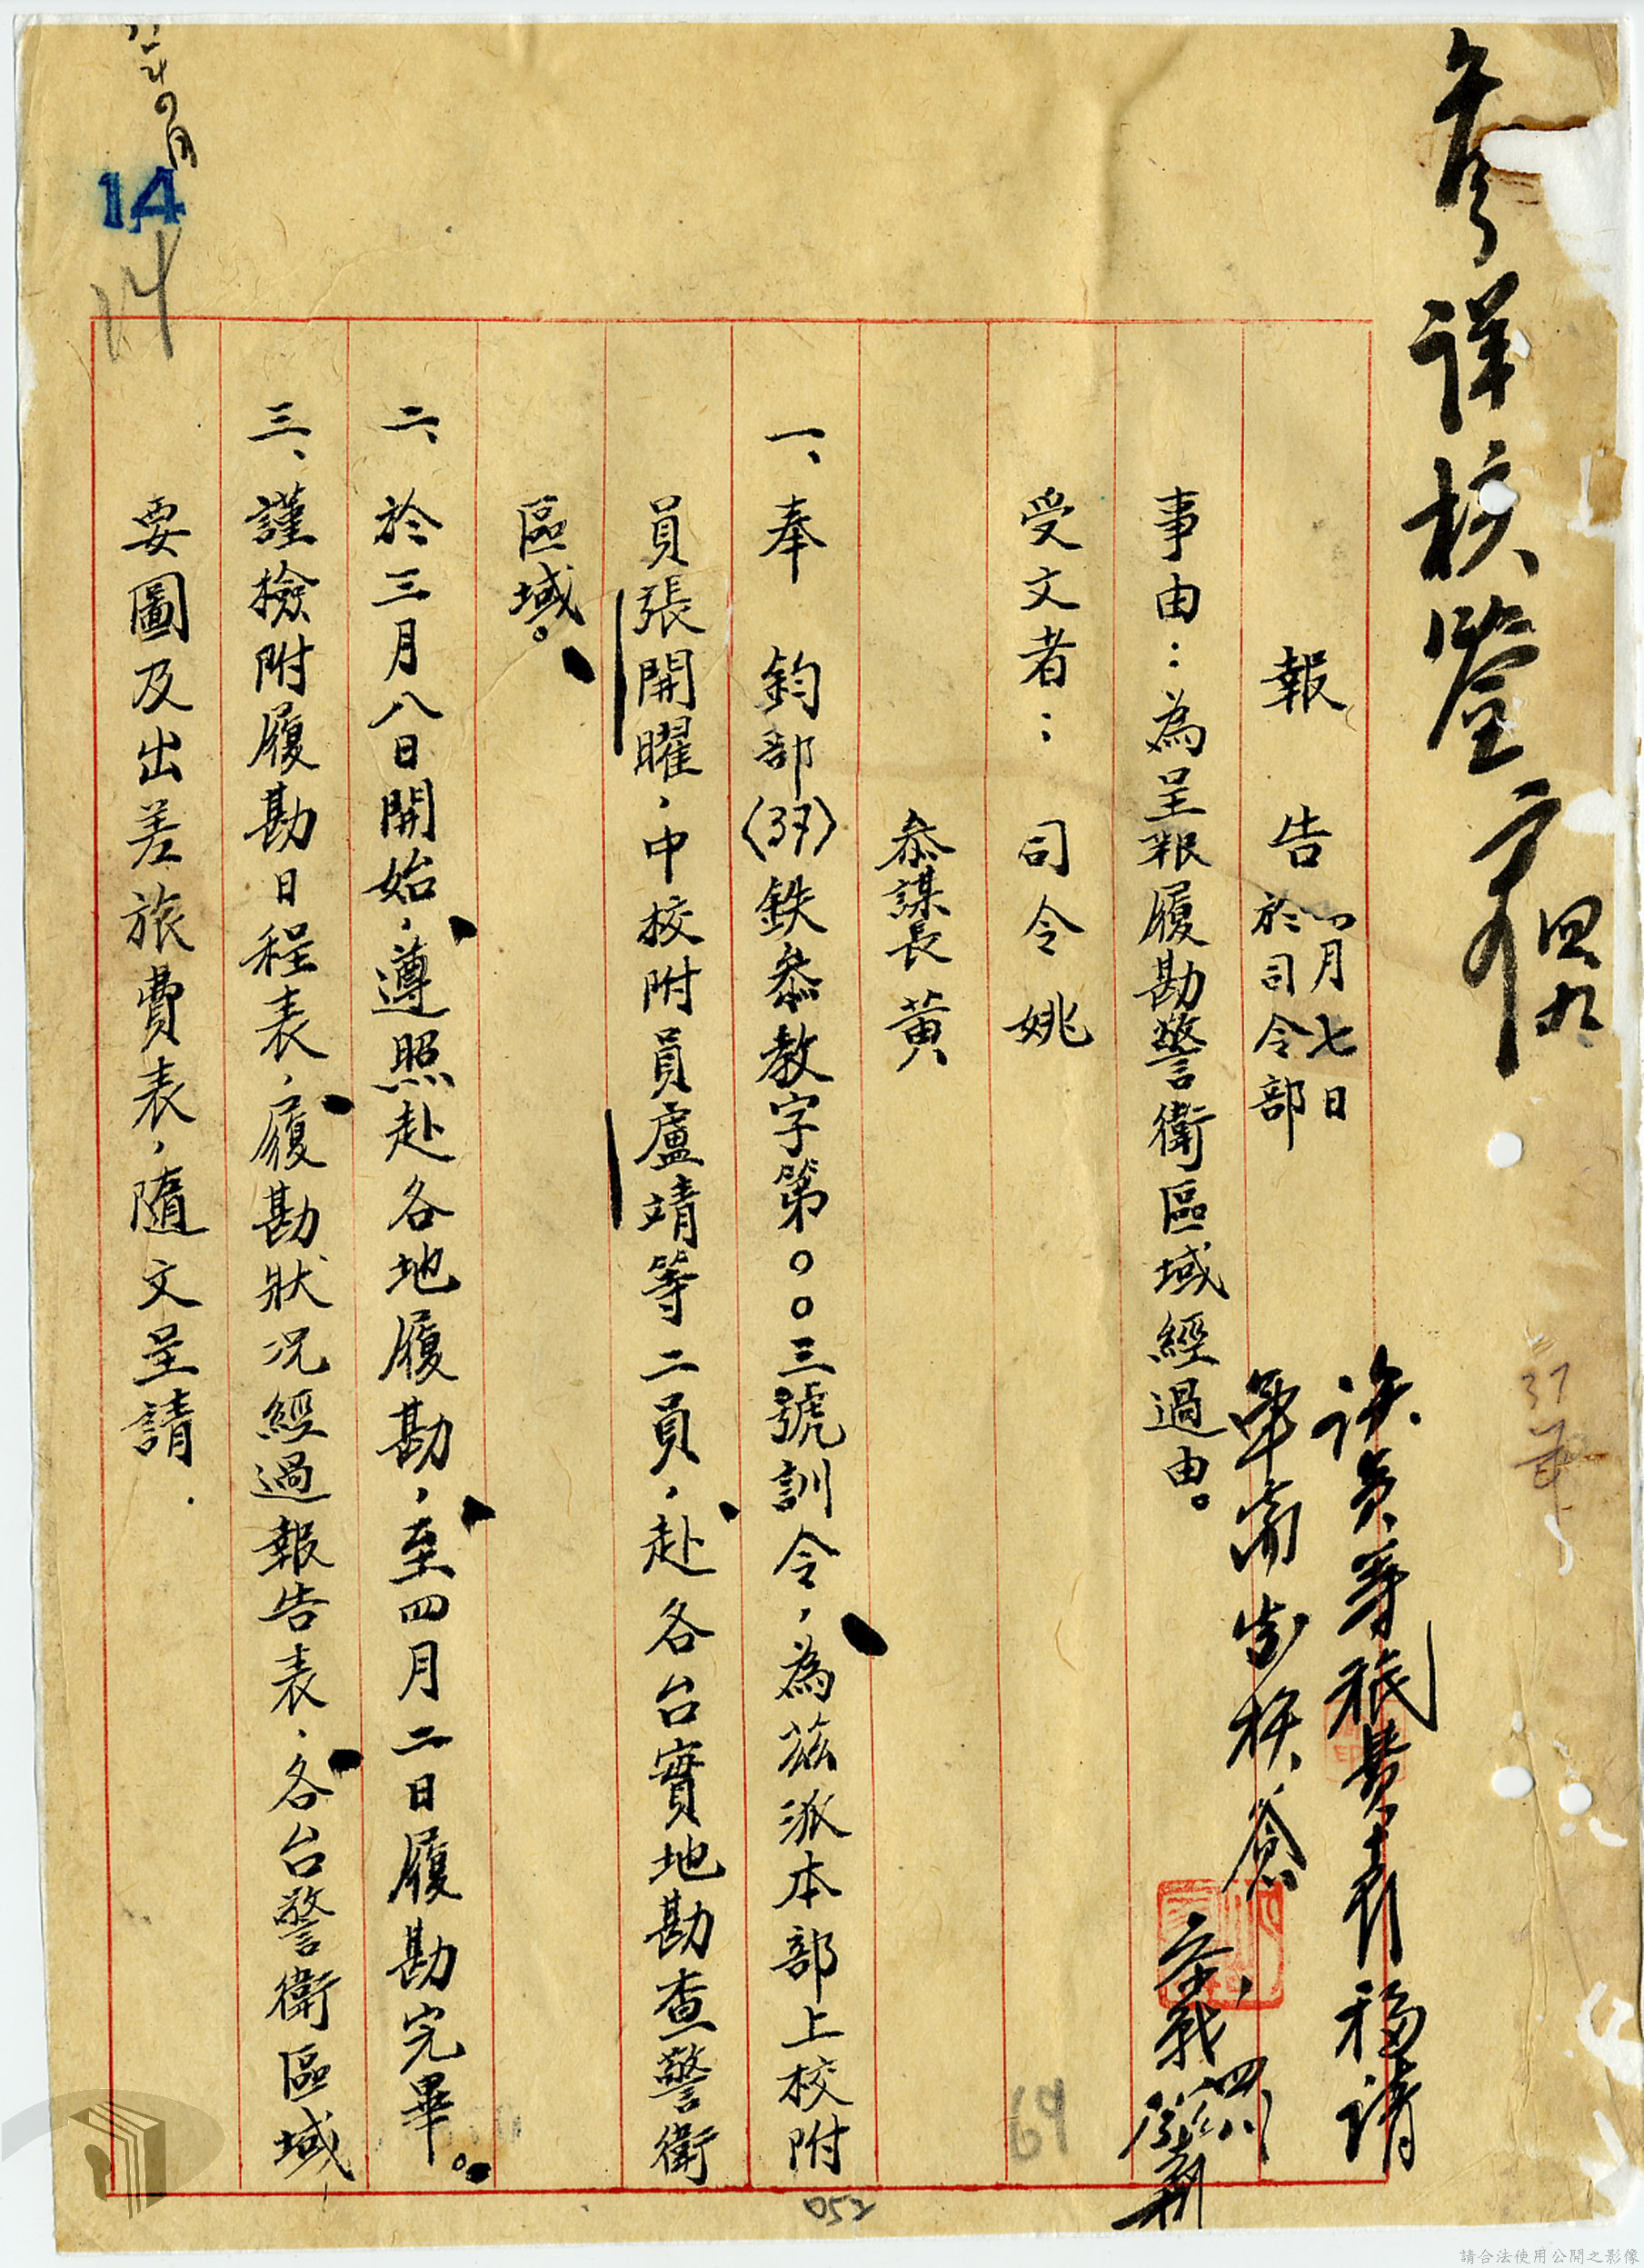 參詳核鑒
四九
報告 四月七日
於司令部
事由：為呈報履勘警衛區域經過由。
受文者：司令姚
叅謀長黃
一、奉　鈞部〈37〉鉄叅教字第〇〇三號訓令，為茲派本部上校附
員張開曜，中校附員盧靖等二員，赴各台實地勘查警衛
區域。
二、於三月八日開始，遵照赴各地履勘，至四月二日履勘完畢。
三、謹檢附履勘日程表，履勘狀况經過報告表，各台警衛區域
要圖及出差旅費表，隨文呈請．
年四月
14
14
37
64
052
請合法使用公開之影像